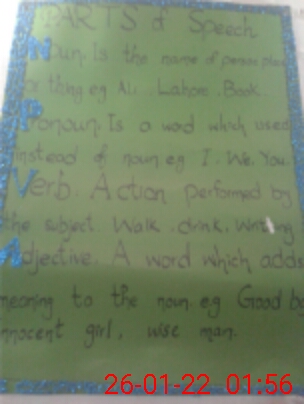 PARTS of Speech
Noun. Is the name of person place
or thing eg Ali. Lahore. Book.
Pronoun. Is a word which used
instead of noun eg I. We. You.
Verb. Action performed by
the subject. Walk. drink. Writing
Adjective. A word which adds
meaning to the noun. eg Good boy
innocent girl, wise man.
26-01-22 01:56